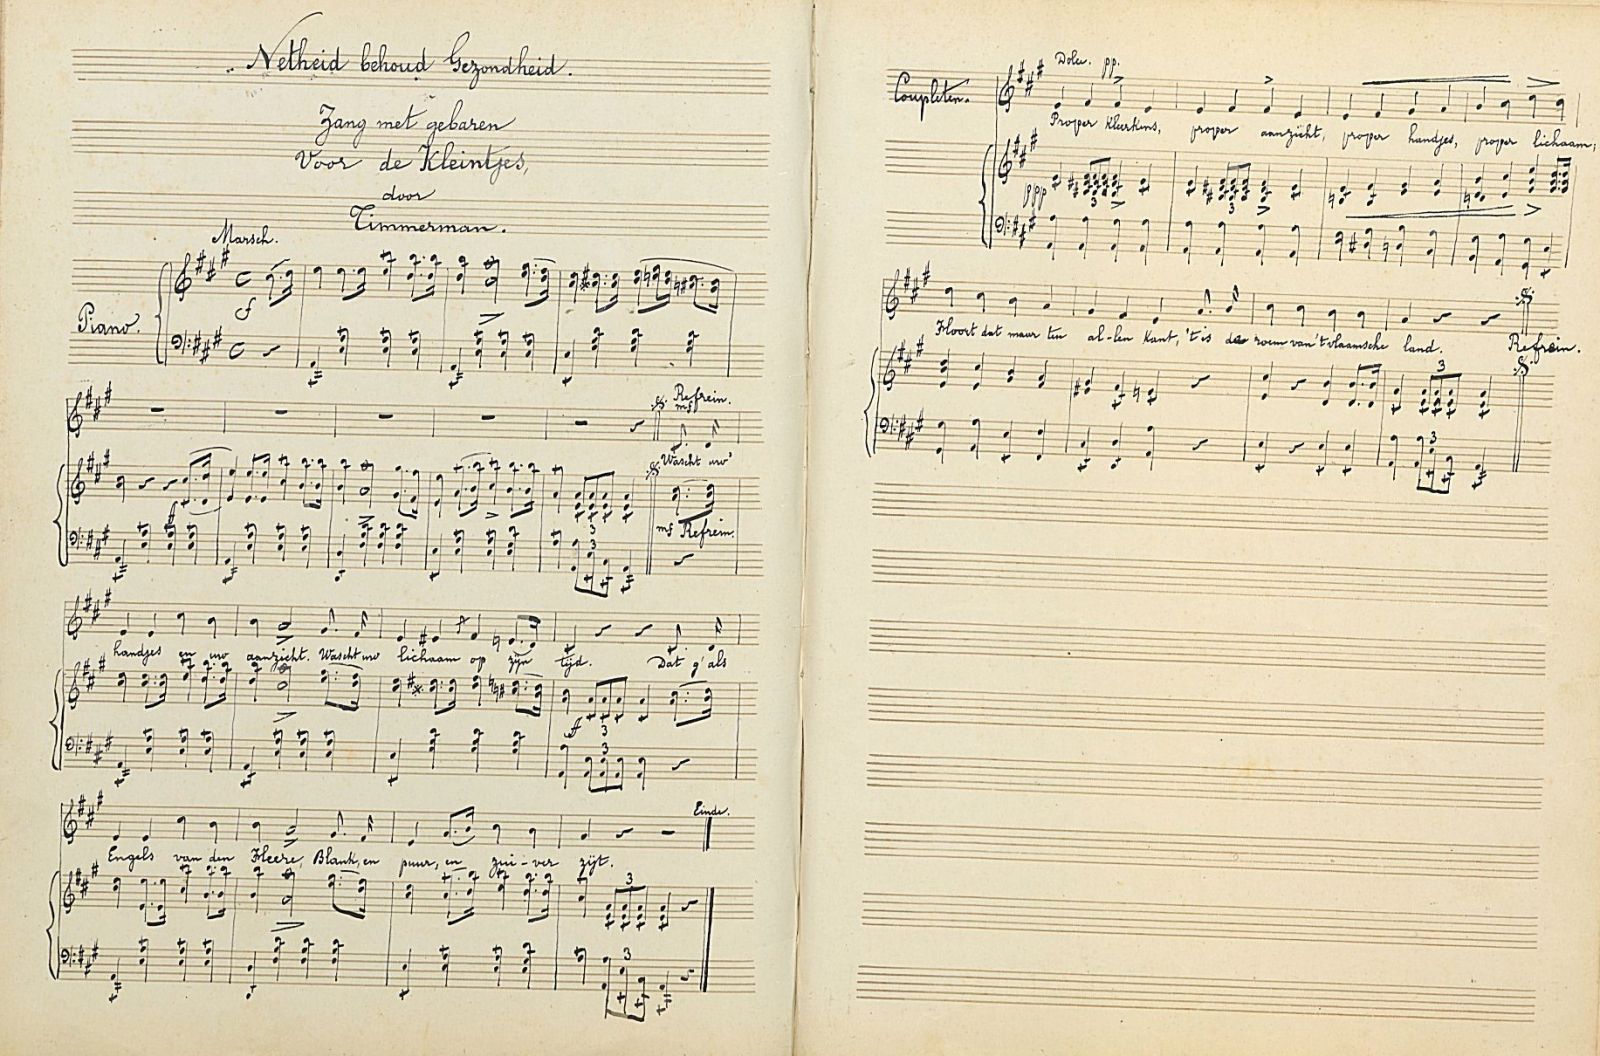 Netheid behoud Gezondheid.
Zang met gebaren
Voor de Kleintjes,
door
Timmerman.
Marsch.
f
Piano.
Refrein.
mf
Wascht uw'
f
mf Refrein.
3
3
handjes en uw aanzicht. Wascht uw lichaam op zijn tijd. Dat g'als
f 3
3
Einde.
Engels van den Heere, Blank, en puur, en zui-ver zijt.
3
3
Dolce. pp.
Coupletten.
Proper kleerkens, proper aanzicht, proper handjes, proper lichaam;
ppp
3 3
Hoort dat maar ten al-len kant, 't is de roem van 't vlaamsche land. Refrein.
3
3